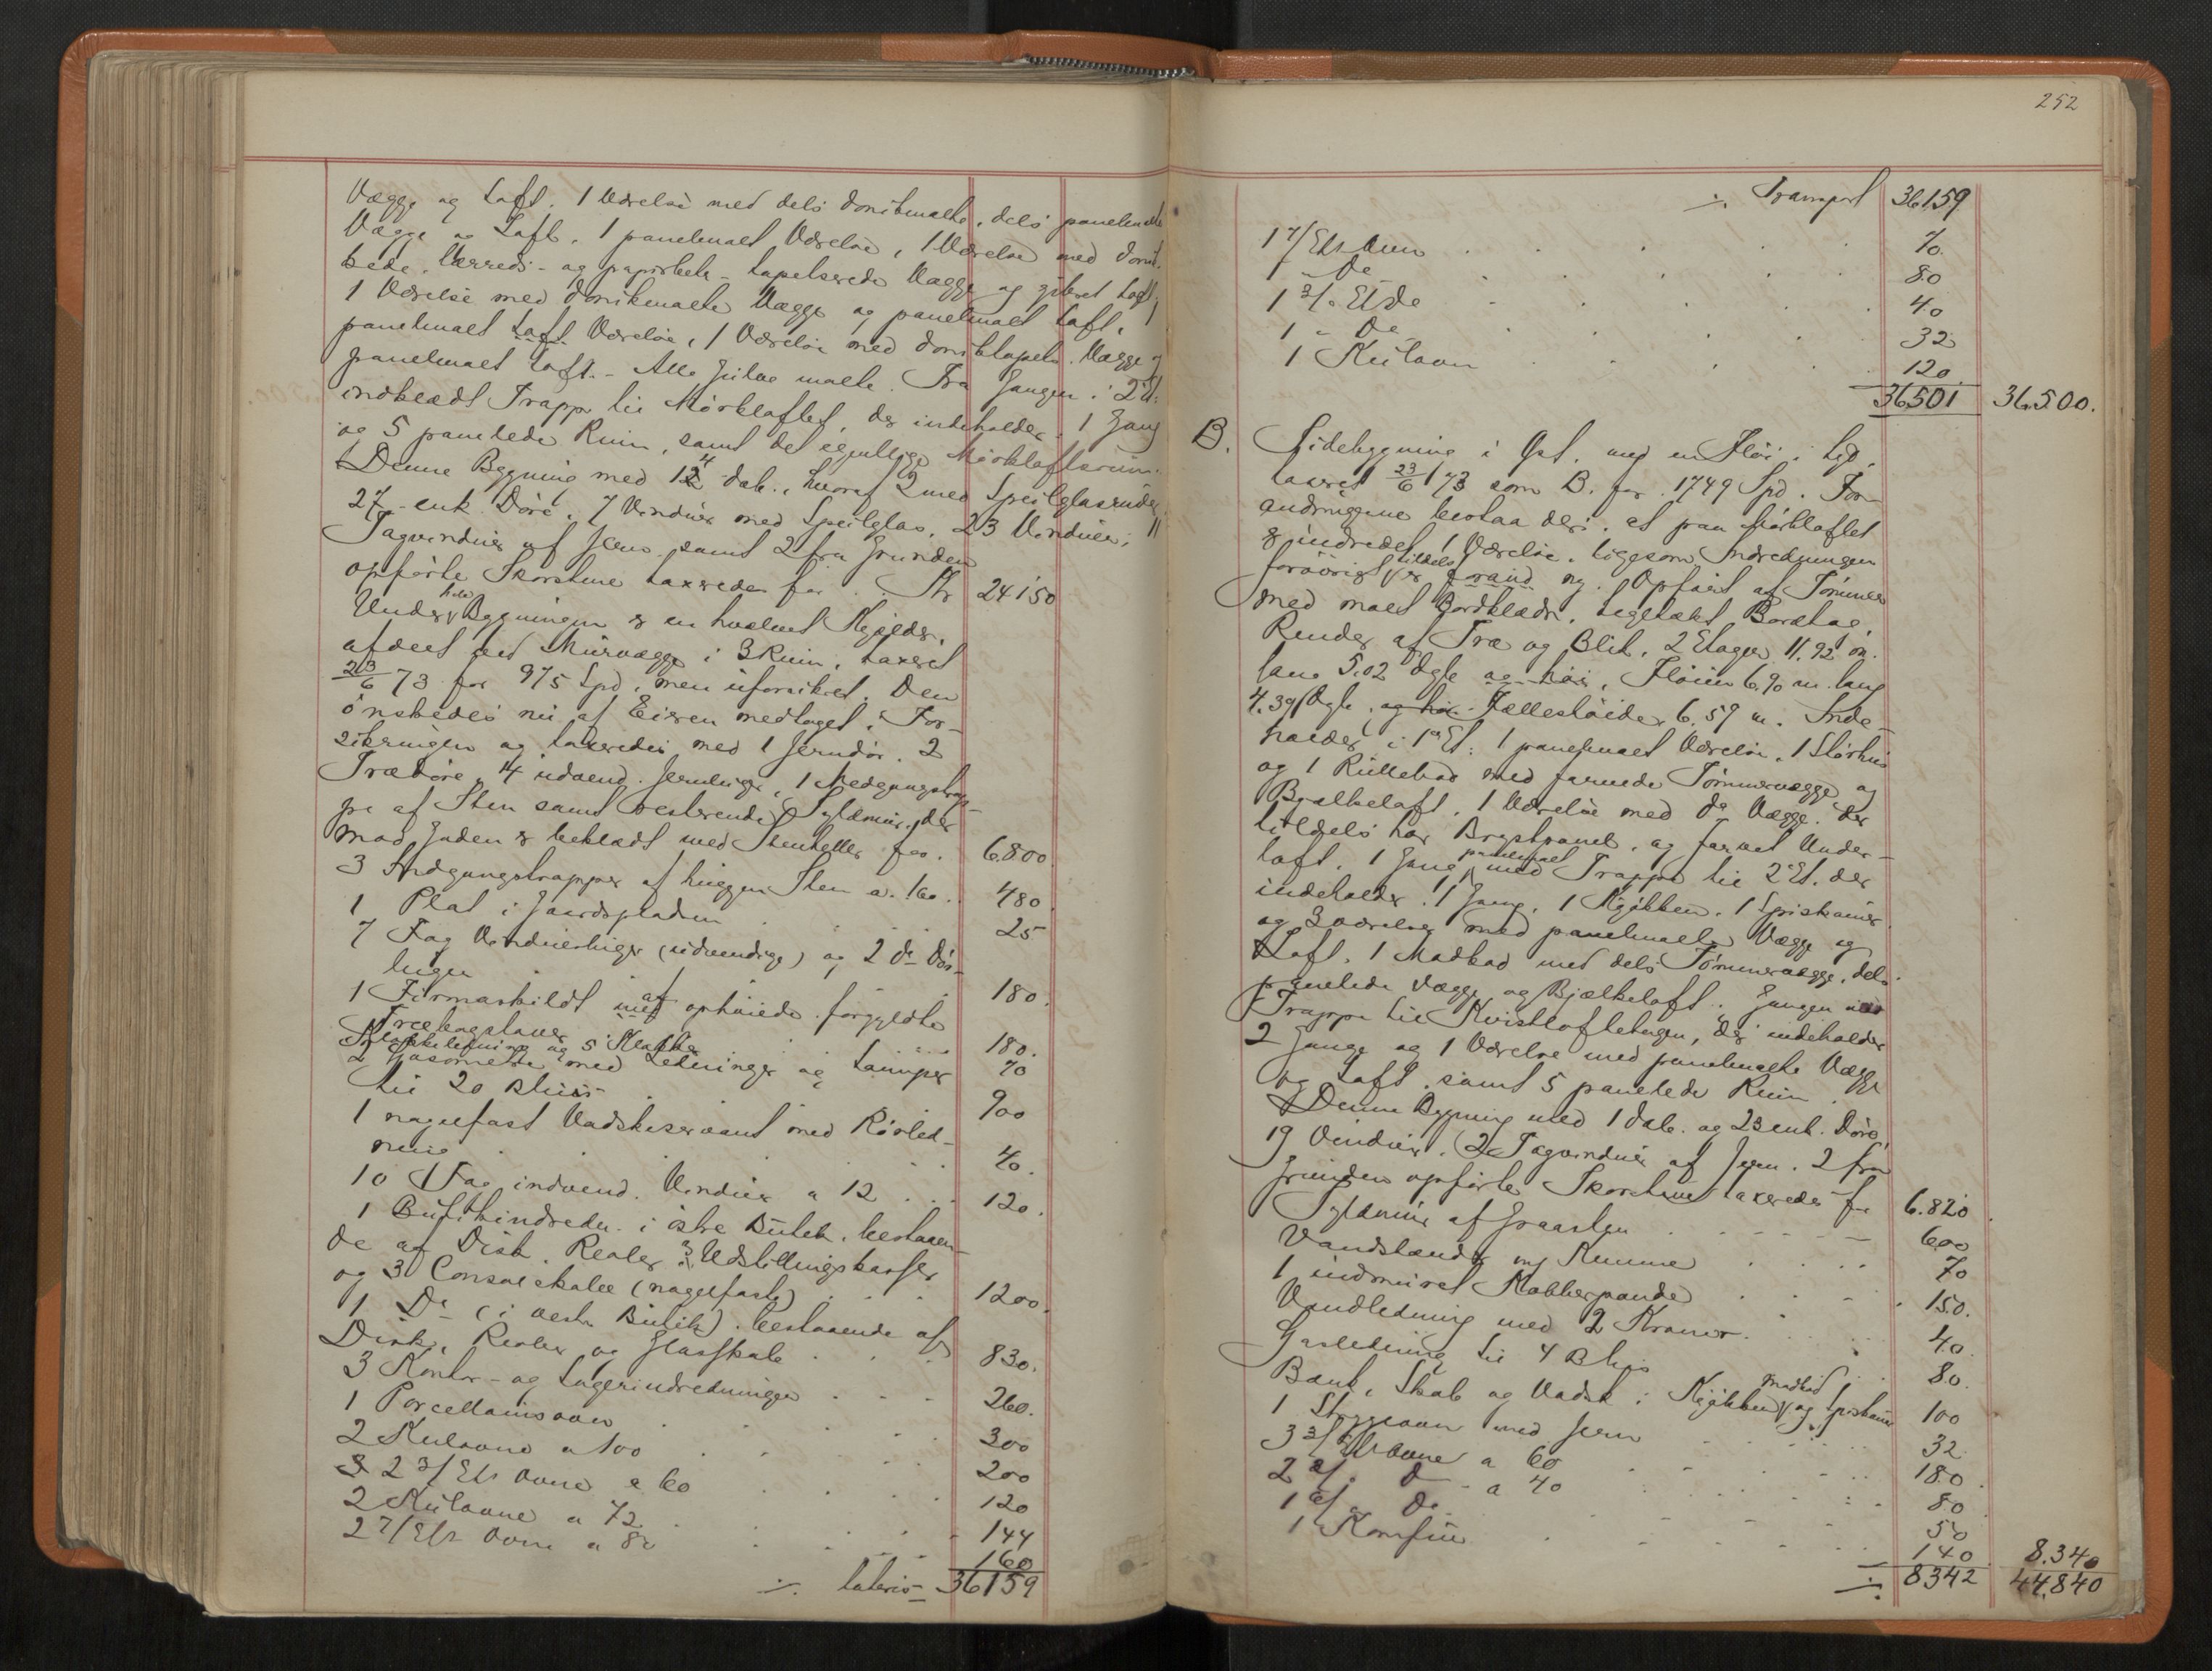 Vægge og Loft. 1 Værelse med dels donkmalte, dels panelmalte
Vægge og Loft. 1 panelmalt Værelse, 1 Værelse med
Værreds- og tapetserede Vægge og gibset Loft,
1 Værelse med donkmalte Vægge og panelmalt Loft, 1
panelmalt Loft Værelse, 1 Værelse med Vægge og
panelmalt Loft. - Alle Gulve malte. Fra Gangen i 2 Et.
indklædt Trappe til Mørkloftet, der indeholder 1 Gang
og 5 panelede Rum, samt det egentlige Mørkloftsrum.
Denne Bygning med 14 dob., hvoraf 2 med Speilglasruder,
27 enk. Døre, 7 Vinduer med Speilglas, 23 Vinduer, 11
Tagvinduer af Jern samt 2 fra Grunden
opførte Skorstene taxeredes for . . Kr 24150
Under hele Bygningen er en hvælvet Kjelder,
afdelt ved Murvægge i 3 Rum, taxeret
23/6 73 for 975 Spd, men uforsikret. Den
ønskedes nu af Eieren medtaget i For-
sikringen og taxeredes med 1 Jerndør, 2
Trædøre, 14 udvend. Jernluger, 1 Nedgangstrap-
pe af Sten samt resterende Syldmur, der
mod Gaden er beklædt med Stenheller for. 6.800.
3 Indgangstrapper af huggen Sten a. 160. 480.
1 Plat i Gaardspladsen . . . 25
7 Fag Vinduesluger (udvendige) og 2 Do Dør-
luger . . . 180.
1 Firmaskildt med af ophøiede forgyldte
Træbogstaver . . . 180.
Klokkeledning og 5 Klokker . . . 70
2 Gasometre med Ledninger og Lamper
til 20 Blus . . . 900
1 naglefast Vadskeservant med Rørled-
ning . . . 40.
10 Fag indvend. Vinduer a 12 . . . 120.
1 Butikindredn. i østre Butik, bestaaen-
de af Disk, Reoler, 3 Udstillingskasser
og 3 (naglefaste) . . . 1200.
1 Do (i vestr. Butik). bestaaende af
Disk, Reoler og Glasskabe . . . 830.
3 Kontor- og Lagerindredninger . . . 260.
1 Porcellainsovn . . . 300
2 Kulovne a 100 . . . 200
2 3/Ets Ovne a 60 . . . 120
2 Kulovne a 72 . . . 144
2 7/Ets Ovne a 80 . . . 160
./. Lateris 36159
252
./. Transport 36159
1 7/Ets Ovn . . . 70.
1 " Do . . . 80
1 3/" Ets Do . . . 40
1 " Do . . . 32
1 Kulovn . . . 120.
36501 36.500.
B. Sidebygning i Øst, med en Fløi i Syd,
taxeret 23/6 73 som B. for 1749 Spd. For-
andringerne bestaa deri, at paa Mørkloftet
er indredet 1 Værelse, ligesom Indredningen
forøvrigt tildels er ny. Opført af Tømmer
med malt Bordklædn., teglstækt Bordtag,
Render af Træ og Blik, 2 Etager 11,92 m.
lang 5.02 dyb og høi, Fløien 6.90 m. lang
4.39 Dyb, og høi Fælleshøide 6,59 m. Inde-
holder i 1ste Et.: 1 panelmalt Værelse, 1 Størhus
og 1 Rullebod med farvede Tømmervægge og
Bjælkeloft, 1 Værelse med Do Vægge, der
tildels har Brystpanel, og farvet Under-
loft, 1 Gang panelmalt med Trappe til 2 Et. der
indeholder 1 Gang, 1 Kjøkken, 1 Spiskamer
og 3 Værelser med panelmalte Vægge og
Loft, 1 Madbod med dels Tømmervægge, dels
panelede Vægge og Bjælkeloft. Gangen med
Trappe til Kvistloftetagen, der indeholder
2 Gange og 1 Værelse med panelmalte Vægge
og Loft, samt 5 panelede Rum.
Denne Bygning med 1 dob. og 23 enk. Døre,
19 Vinduer, 2 Tagvinduer af Jern, 2 fra
Grunden opførte Skorstene taxeredes for 6.820.
Syldmur af Graasten . . . 600
Vandstænder med Kumme . . . 70
1 indmuret Kobberpande . . . 150.
Vandledning med 2 Kraner . . . 40.
Gasledning til 4 Blus . . . 80.
Bænk, Skab og Vadsk i Kjøkken madbod og Spiskamer 100
1 Strygeovn med Jern . . . 32
3 3/Ets Ovne a 60 . . . 180.
2 2/" Do a 40 . . . 80
1 2/" Do . . . 50
1 Komfur . . . 140 8.340
./. 8342 44.840